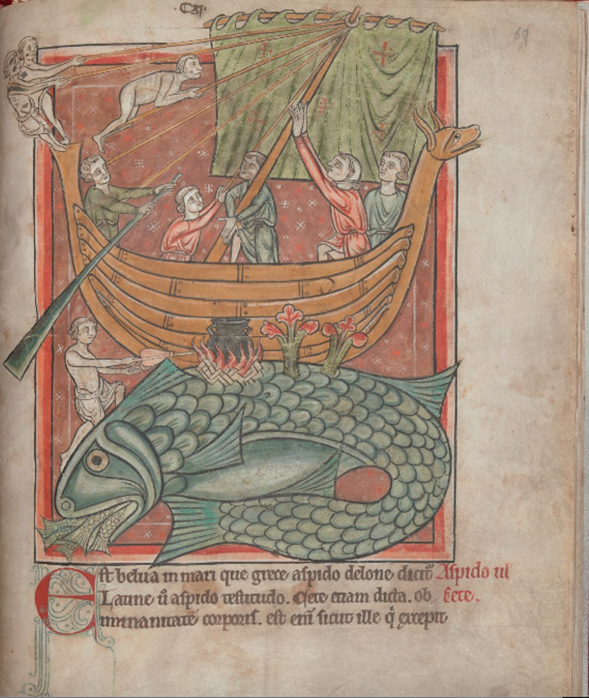 69
Est belua in mari que grece aspido delone dicit̄ Aspido ul
Latine ū aspido testitudo. Cete etiam dicta. ob Cete.
inmanitatē corporis. est enī sicut ille q̇ excepit